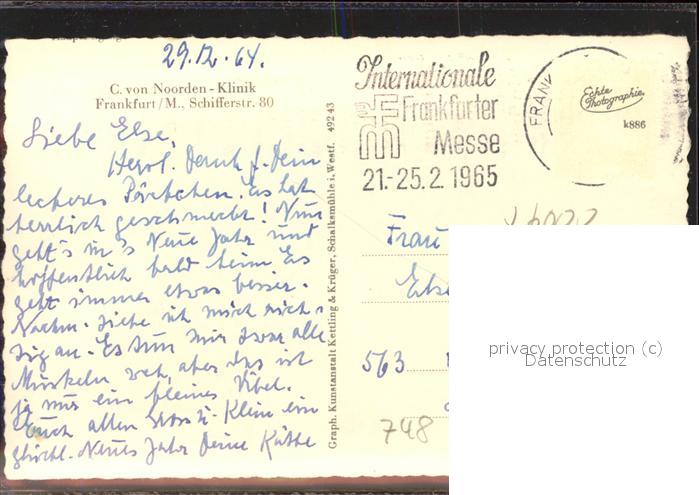 29.12.64.
C. von Noorden-Klinik
Frankfurt/M., Schifferstr. 80
Liebe Else,
Herzl. Dank f. Dein
leckeres Törtchen. Es hat
herrlich geschmeckt! Nun
geht's in's Neue Jahr und
hoffentlich bald heim. Es
geht immer etwas besser.
Nachm. ziehe ich mich rich-
tig an. Es tun mir zwar alle
Muskeln weh, aber das ist
ja nur ein kleines Übel.
Euch allen gross u. klein ein
glückl. Neues Jahr Deine Käthe
Graph. Kunstanstalt Kettling & Krüger, Schalksmühle i. Westf. 492 43
Internationale
Frankfurter
Messe
21.-25.2.1965
FRANK
Echte
Photographie
k886
Frau
Else
563
748
privacy protection (c)
Datenschutz